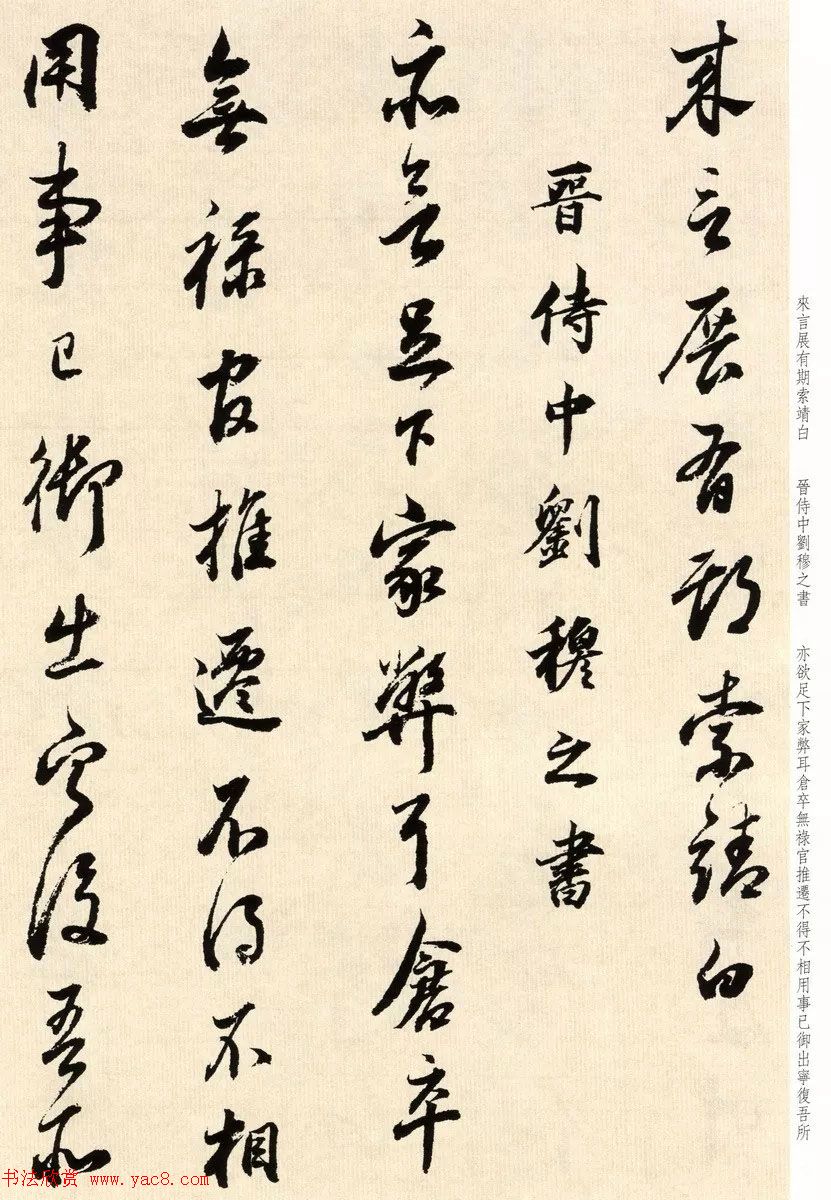 來言展有期索靖白
晉侍中劉穆之書
亦欲足下家弊耳倉卒
無祿官推遷不得不相
用事已御出寧復吾所
來言展有期索靖白　晉侍中劉穆之書　亦欲足下家弊耳倉卒無祿官推遷不得不相用事已御出寧復吾所
书法欣赏 www.yac8.com